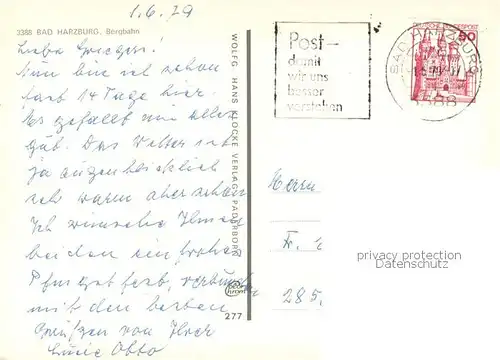 1.6.79
3388 BAD HARZBURG, Bergbahn
Nun bin ich schon
fast 14 Tage hier.
Es gefällt mir alles
gut. Das Wetter ist
ja augenblicklich
sehr warm aber schön
Ich wünsche Ihnen
beiden ein frohes
Pfingstfest, verbunden
mit den besten
Grüssen von Ihrer
Lucie Otto
WOLFG. HANS KLOCKE VERLAG, PADERBORN
277
Post-
damit
wir uns
besser
verstehen
DEUTSCHE BUNDESPOST
50
BAD HARZBURG
3388
Herrn
Fr.
285
privacy protection
Datenschutz